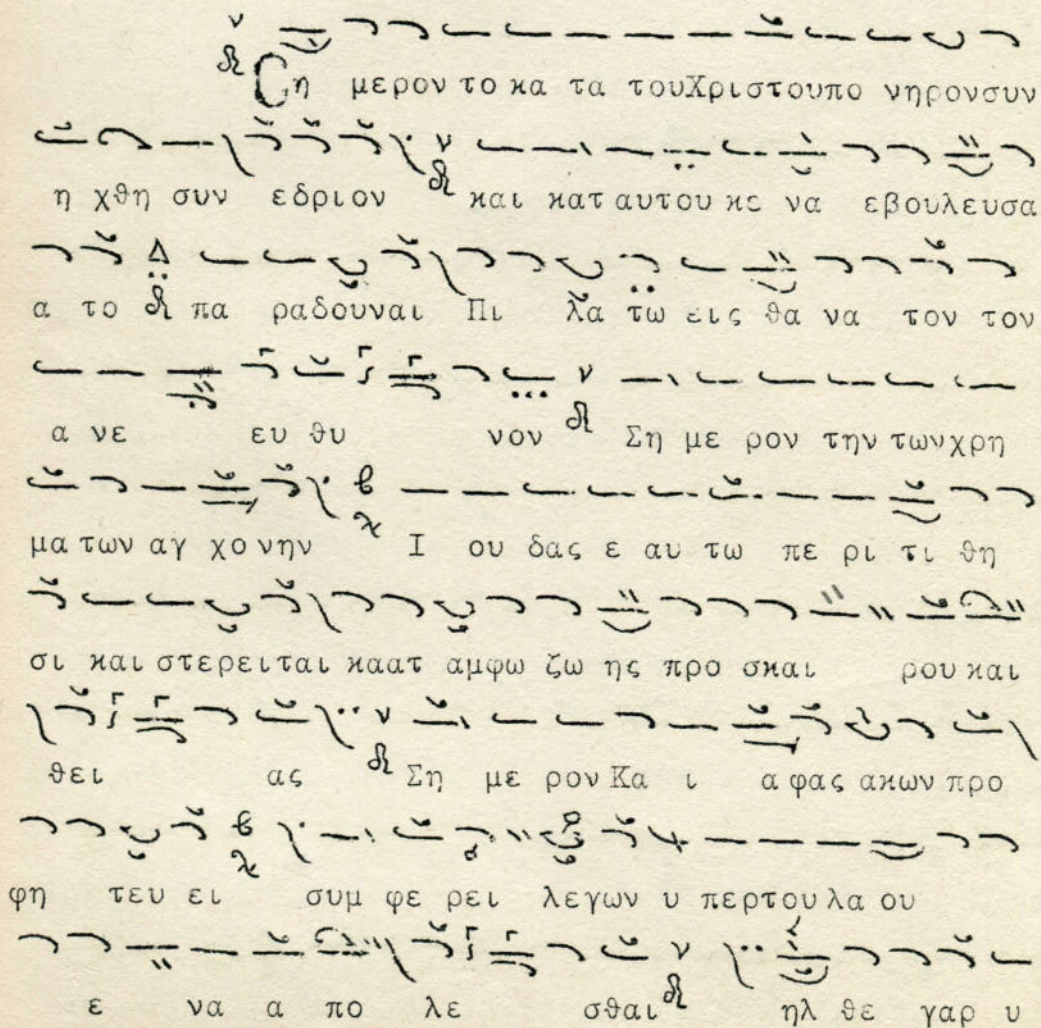 Ϲη μερον το κα τα τουΧριστουπο νηρονσυν
η χθη συν εδριον και κατ αυτου κε να εβουλευσα
α το πα ραδουναι Πι λα τω εις θα να τον τον
α νε ευ θυ νον Ση με ρον την τωνχρη
μα των αγ χο νην Ι ου δας ε αυ τω πε ρι τι θη
σι και στερειται καατ αμφω ζω ης προ σκαι ρου και
θει ας Ση με ρον Κα ι α φας ακων προ
φη τευ ει συμ φε ρει λεγων υ περ του λα ου
ε να α πο λε σθαι ηλ θε γαρ υ